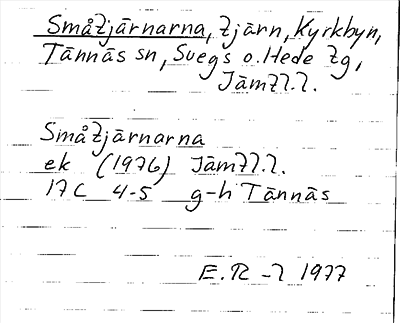 Småtjärnarna, tjärn, Kyrkbyn,
Tännäs sn, Svegs o. Hede tg,
Jämtl.l.
Småtjärnarna
ek (1976) Jämtl.l.
17C 4-5 g-h Tännäs
E.R-l 1977